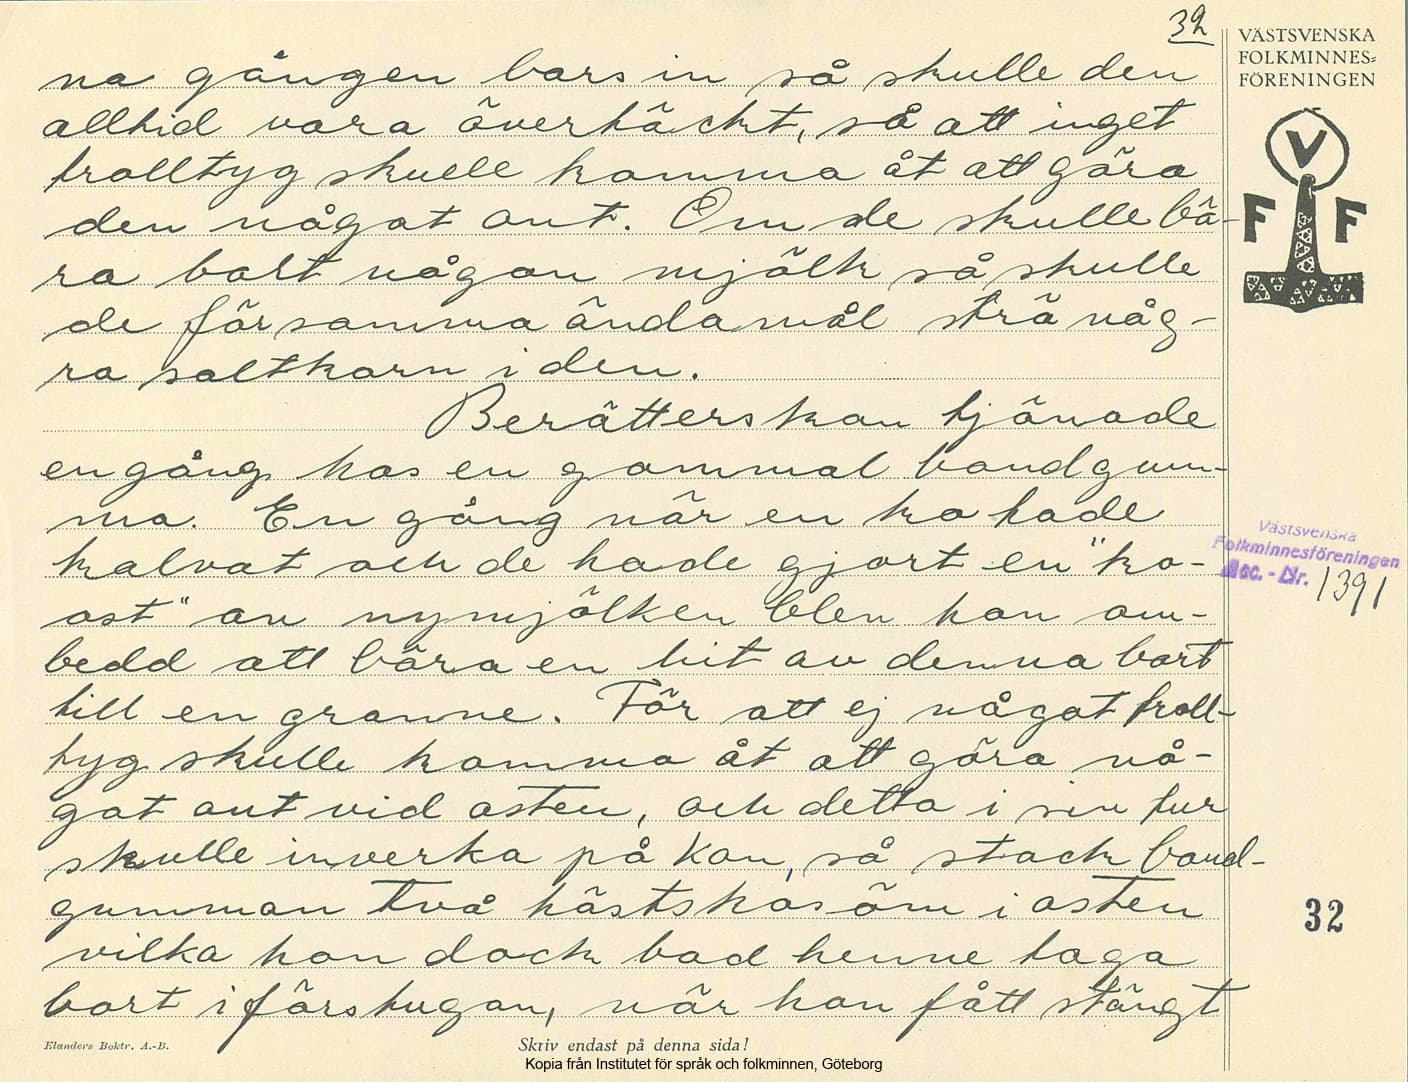 32
VÄSTSVENSKA
FOLKMINNES=
FÖRENINGEN
V
F F
na gången bars in så skulle den
alltid vara övertäckt, så att inget
trolltyg skulle komma åt att göra
den något ont. Om de skulle bä-
ra bort någon mjölk så skulle
de för samma ändamål strä någ-
ra saltkorn i den.
Berätterskan tjänade
en gång hos en gammal bondgum-
ma. En gång när en ko hade
kalvat och de hade gjort en "ko-
ost" av nymjölken blev hon om-
bedd att bära en bit av denna bort
till en granne. För att ej något troll-
tyg skulle komma åt att göra nå-
got ont vid osten, och detta i sin tur
skulle inverka på kon, så stack bond-
gumman två hästskosöm i osten
vilka hon dock bad henne taga
bort i förstugan, när hon fått stängt
Västsvenska
Folkminnesföreningen
Acc. - Nr. 1391
32
Elanders Boktr. A.-B.
Skriv endast på denna sida!
Kopia från Institutet för språk och folkminnen, Göteborg